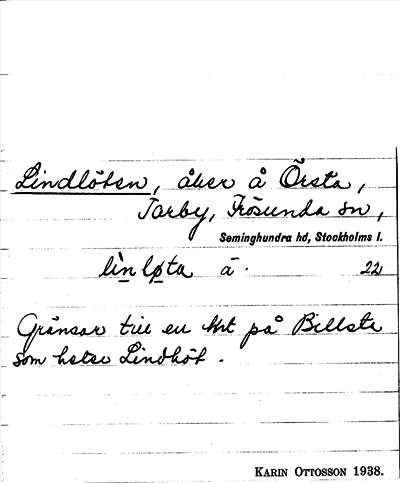 Lindlöten, åker å Örsta,
Tarby, Frösunda sn,
Seminghundra hd, Stockholms l.
lìn lǿta ā. 22
Gränsar till en hrt på Billsta
som heter Lindhöt.
KARIN OTTOSSON 1938.